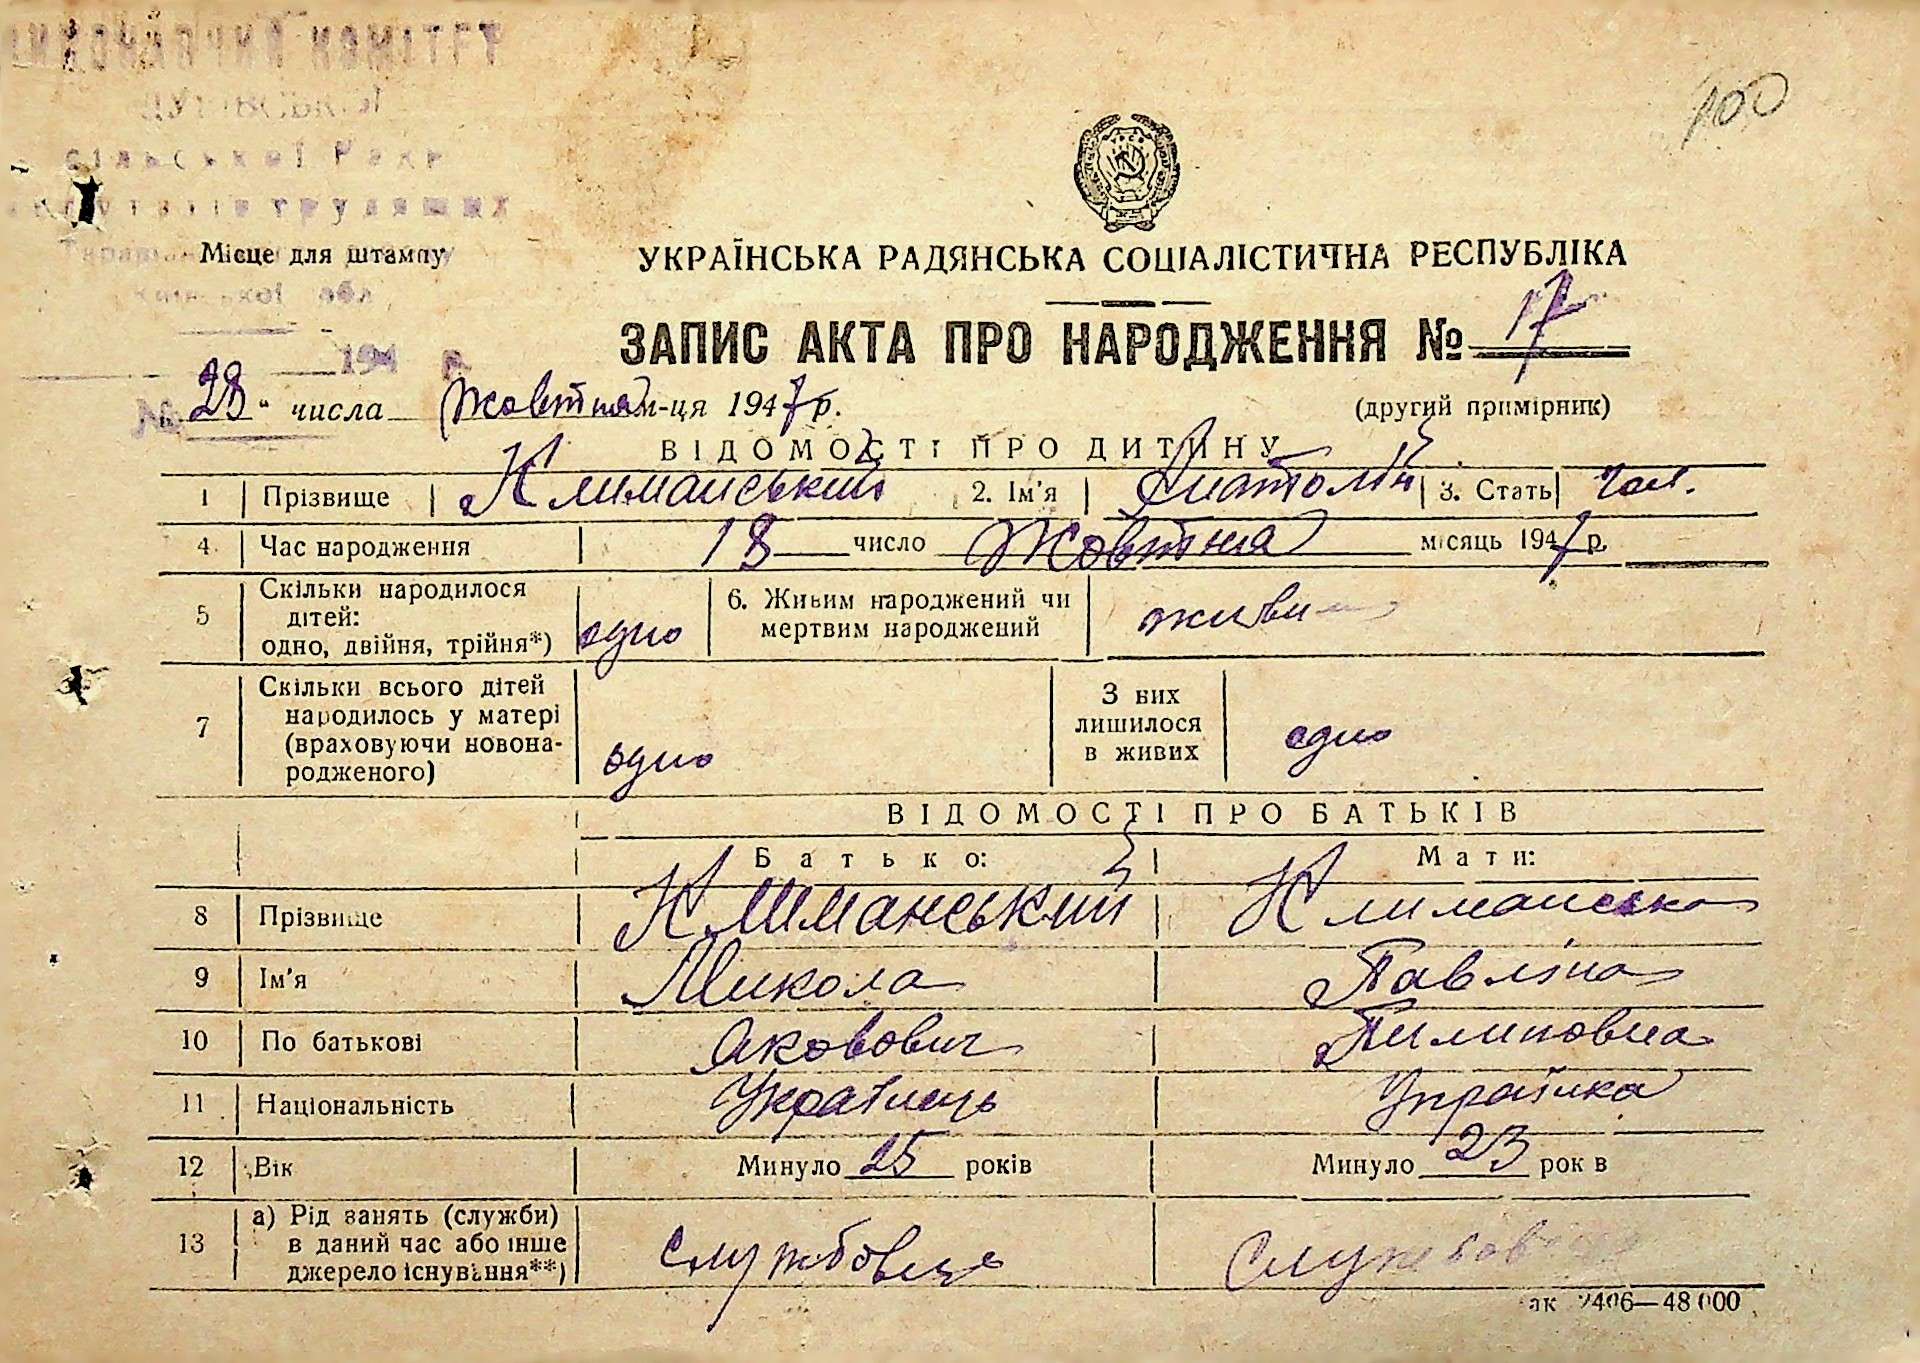 КОМІТЕТ
сільської Ради
трудящих
Місце для штампу
обл.
194 р.
100
УКРАЇНСЬКА РАДЯНСЬКА СОЦІАЛІСТИЧНА РЕСПУБЛІКА
ЗАПИС АКТА ПРО НАРОДЖЕННЯ № 17
„28“ числа Жовтня м-ця 1947 р.
(другий примірник)
ВІДОМОСТІ ПРО ДИТИНУ
1 Прізвище Климанський 2. Ім'я Анатолій 3. Стать чол.
4 Час народження 18 число Жовтня місяць 1947 р.
5 Скільки народилося дітей: одно, двійня, трійня*) одно 6. Живим народжений чи мертвим народжений живим
7 Скільки всього дітей народилось у матері (враховуючи новонародженого) одно З них лишилося в живих одно
ВІДОМОСТІ ПРО БАТЬКІВ
Батько: Мати:
8 Прізвище Климанський Климанська
9 Ім'я Микола Павліна
10 По батькові Якович Пилиповна
11 Національність Українець Українка
12 Вік Минуло 25 років Минуло 23 років
13 а) Рід занять (служби) в даний час або інше джерело існування**) службовець службовець
ак 2406—48 000